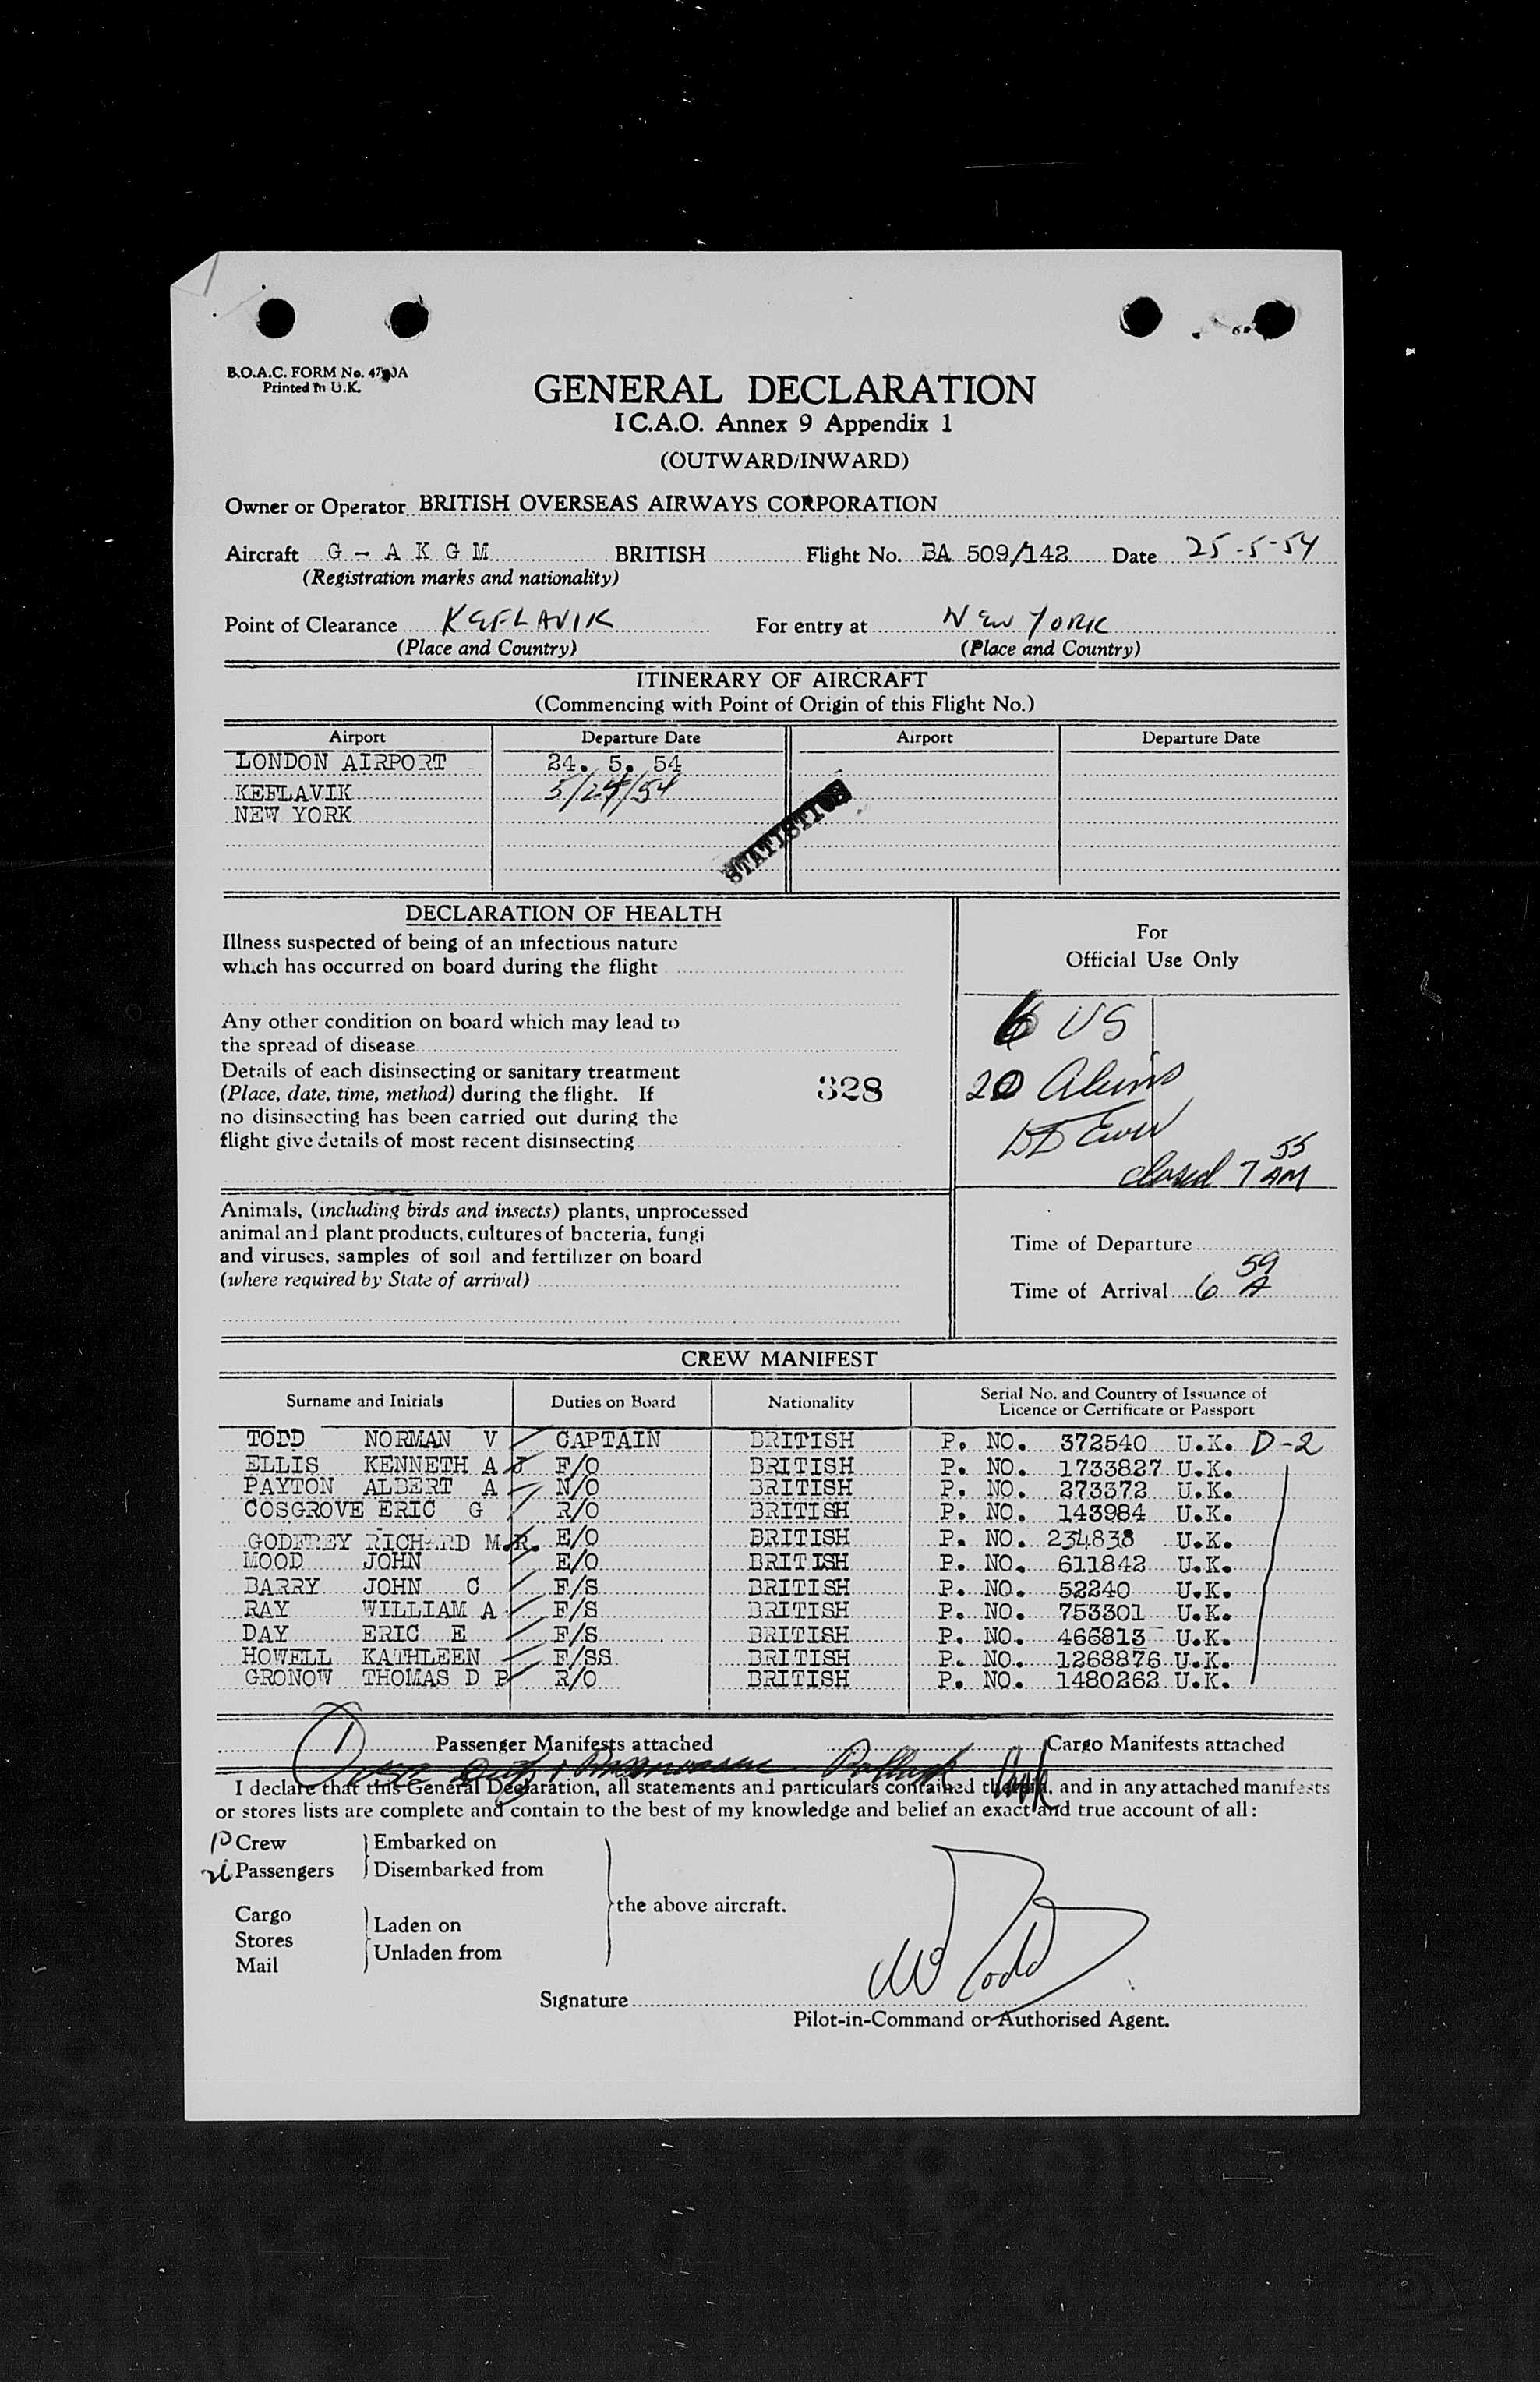 B.O.A.C. FORM No.
Printed in U.K.
GENERAL DECLARATION
I C.A.O. Annex 9 Appendix 1
(OUTWARD/INWARD)
Owner or Operator BRITISH OVERSEAS AIRWAYS CORPORATION
Aircraft G - A K G M BRITISH Flight No. BA 509/142 Date 25-5-54
(Registration marks and nationality)
Point of Clearance KEFLAVIK For entry at NEW YORK
(Place and Country) (Place and Country)
ITINERARY OF AIRCRAFT
(Commencing with Point of Origin of this Flight No.)
Airport Departure Date Airport Departure Date
LONDON AIRPORT 24. 5. 54
KEFLAVIK 5/24/54
NEW YORK
STATISTICS
DECLARATION OF HEALTH
Illness suspected of being of an infectious nature
which has occurred on board during the flight
Any other condition on board which may lead to
the spread of disease
Details of each disinsecting or sanitary treatment
(Place, date, time, method) during the flight. If
no disinsecting has been carried out during the
flight give details of most recent disinsecting
328
For
Official Use Only
6 US
20 Aliens
closed 7 55 AM
Animals, (including birds and insects) plants, unprocessed
animal and plant products, cultures of bacteria, fungi
and viruses, samples of soil and fertilizer on board
(where required by State of arrival)
Time of Departure
Time of Arrival 6 59 A
CREW MANIFEST
Surname and Initials Duties on Board Nationality Serial No. and Country of Issuance of
Licence or Certificate or Passport
TODD NORMAN V CAPTAIN BRITISH P. NO. 372540 U.K. D-2
ELLIS KENNETH A J F/O BRITISH P. NO. 1733827 U.K.
PAYTON ALBERT A N/O BRITISH P. NO. 273372 U.K.
COSGROVE ERIC G R/O BRITISH P. NO. 143984 U.K.
GODFREY RICHARD M.R. E/O BRITISH P. NO. 234838 U.K.
MOOD JOHN E/O BRITISH P. NO. 611842 U.K.
BARRY JOHN C F/S BRITISH P. NO. 52240 U.K.
RAY WILLIAM A F/S BRITISH P. NO. 753301 U.K.
DAY ERIC E F/S BRITISH P. NO. 466813 U.K.
HOWELL KATHLEEN F/SS BRITISH P. NO. 1268876 U.K.
GRONOW THOMAS D P R/O BRITISH P. NO. 1480262 U.K.
1 Passenger Manifests attached Cargo Manifests attached
I declare that this General Declaration, all statements and particulars contained therein, and in any attached manifests
or stores lists are complete and contain to the best of my knowledge and belief an exact and true account of all:
Crew Embarked on
Passengers Disembarked from
the above aircraft.
Cargo
Stores Laden on
Mail Unladen from
Signature Todd
Pilot-in-Command or Authorised Agent.